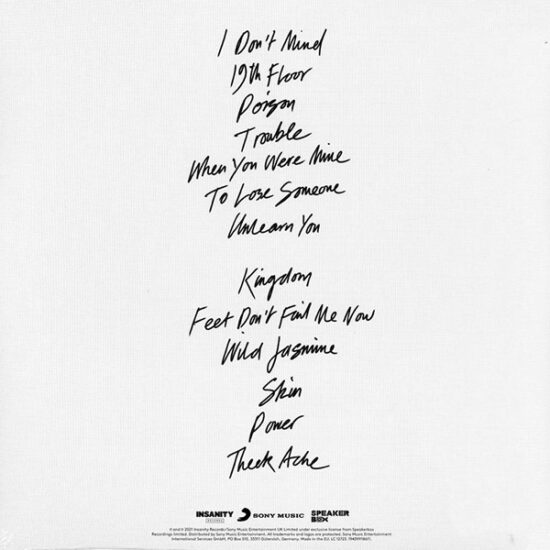 I Don't Mind
19th Floor
Poison
Trouble
When You Were Mine
To Lose Someone
Unlearn You
Kingdom
Feet Don't Fail Me Now
Wild Jasmine
Skin
Power
Theek Ache
INSANITY RECORDS SONY MUSIC SPEAKERBOX
℗ and © 2021 Insanity Records/Sony Music Entertainment UK Limited under exclusive license from Speakerbox
Recordings limited. Distributed by Sony Music Entertainment. All trademarks and logos are protected. Sony Music Entertainment
International Services GmbH, PO Box 510, 33311 Gütersloh, Germany. Made in the EU. LC 12723.